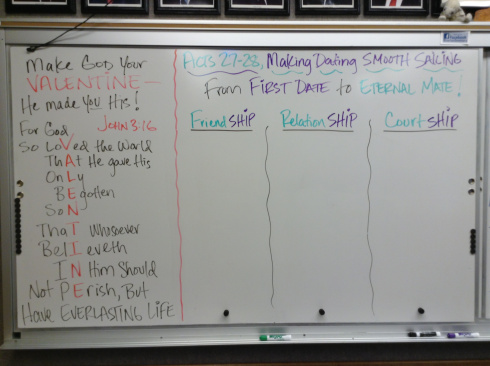 Make God Your
VALENTINE—
He made You His!
For God JOHN 3:16
So LoVed the World
ThAt He gave His
OnLy
BEgotten
SoN
ThaT Whosoever
BelIeveth
IN Him Should
Not PErish, But
Have EVERLASTING LiFE
Acts 27-28, Making Dating SMOOTH SAiLiNG
From FiRST DATE to ETERNAL MATE!
FriendSHiP
RelationSHiP
CourtSHiP